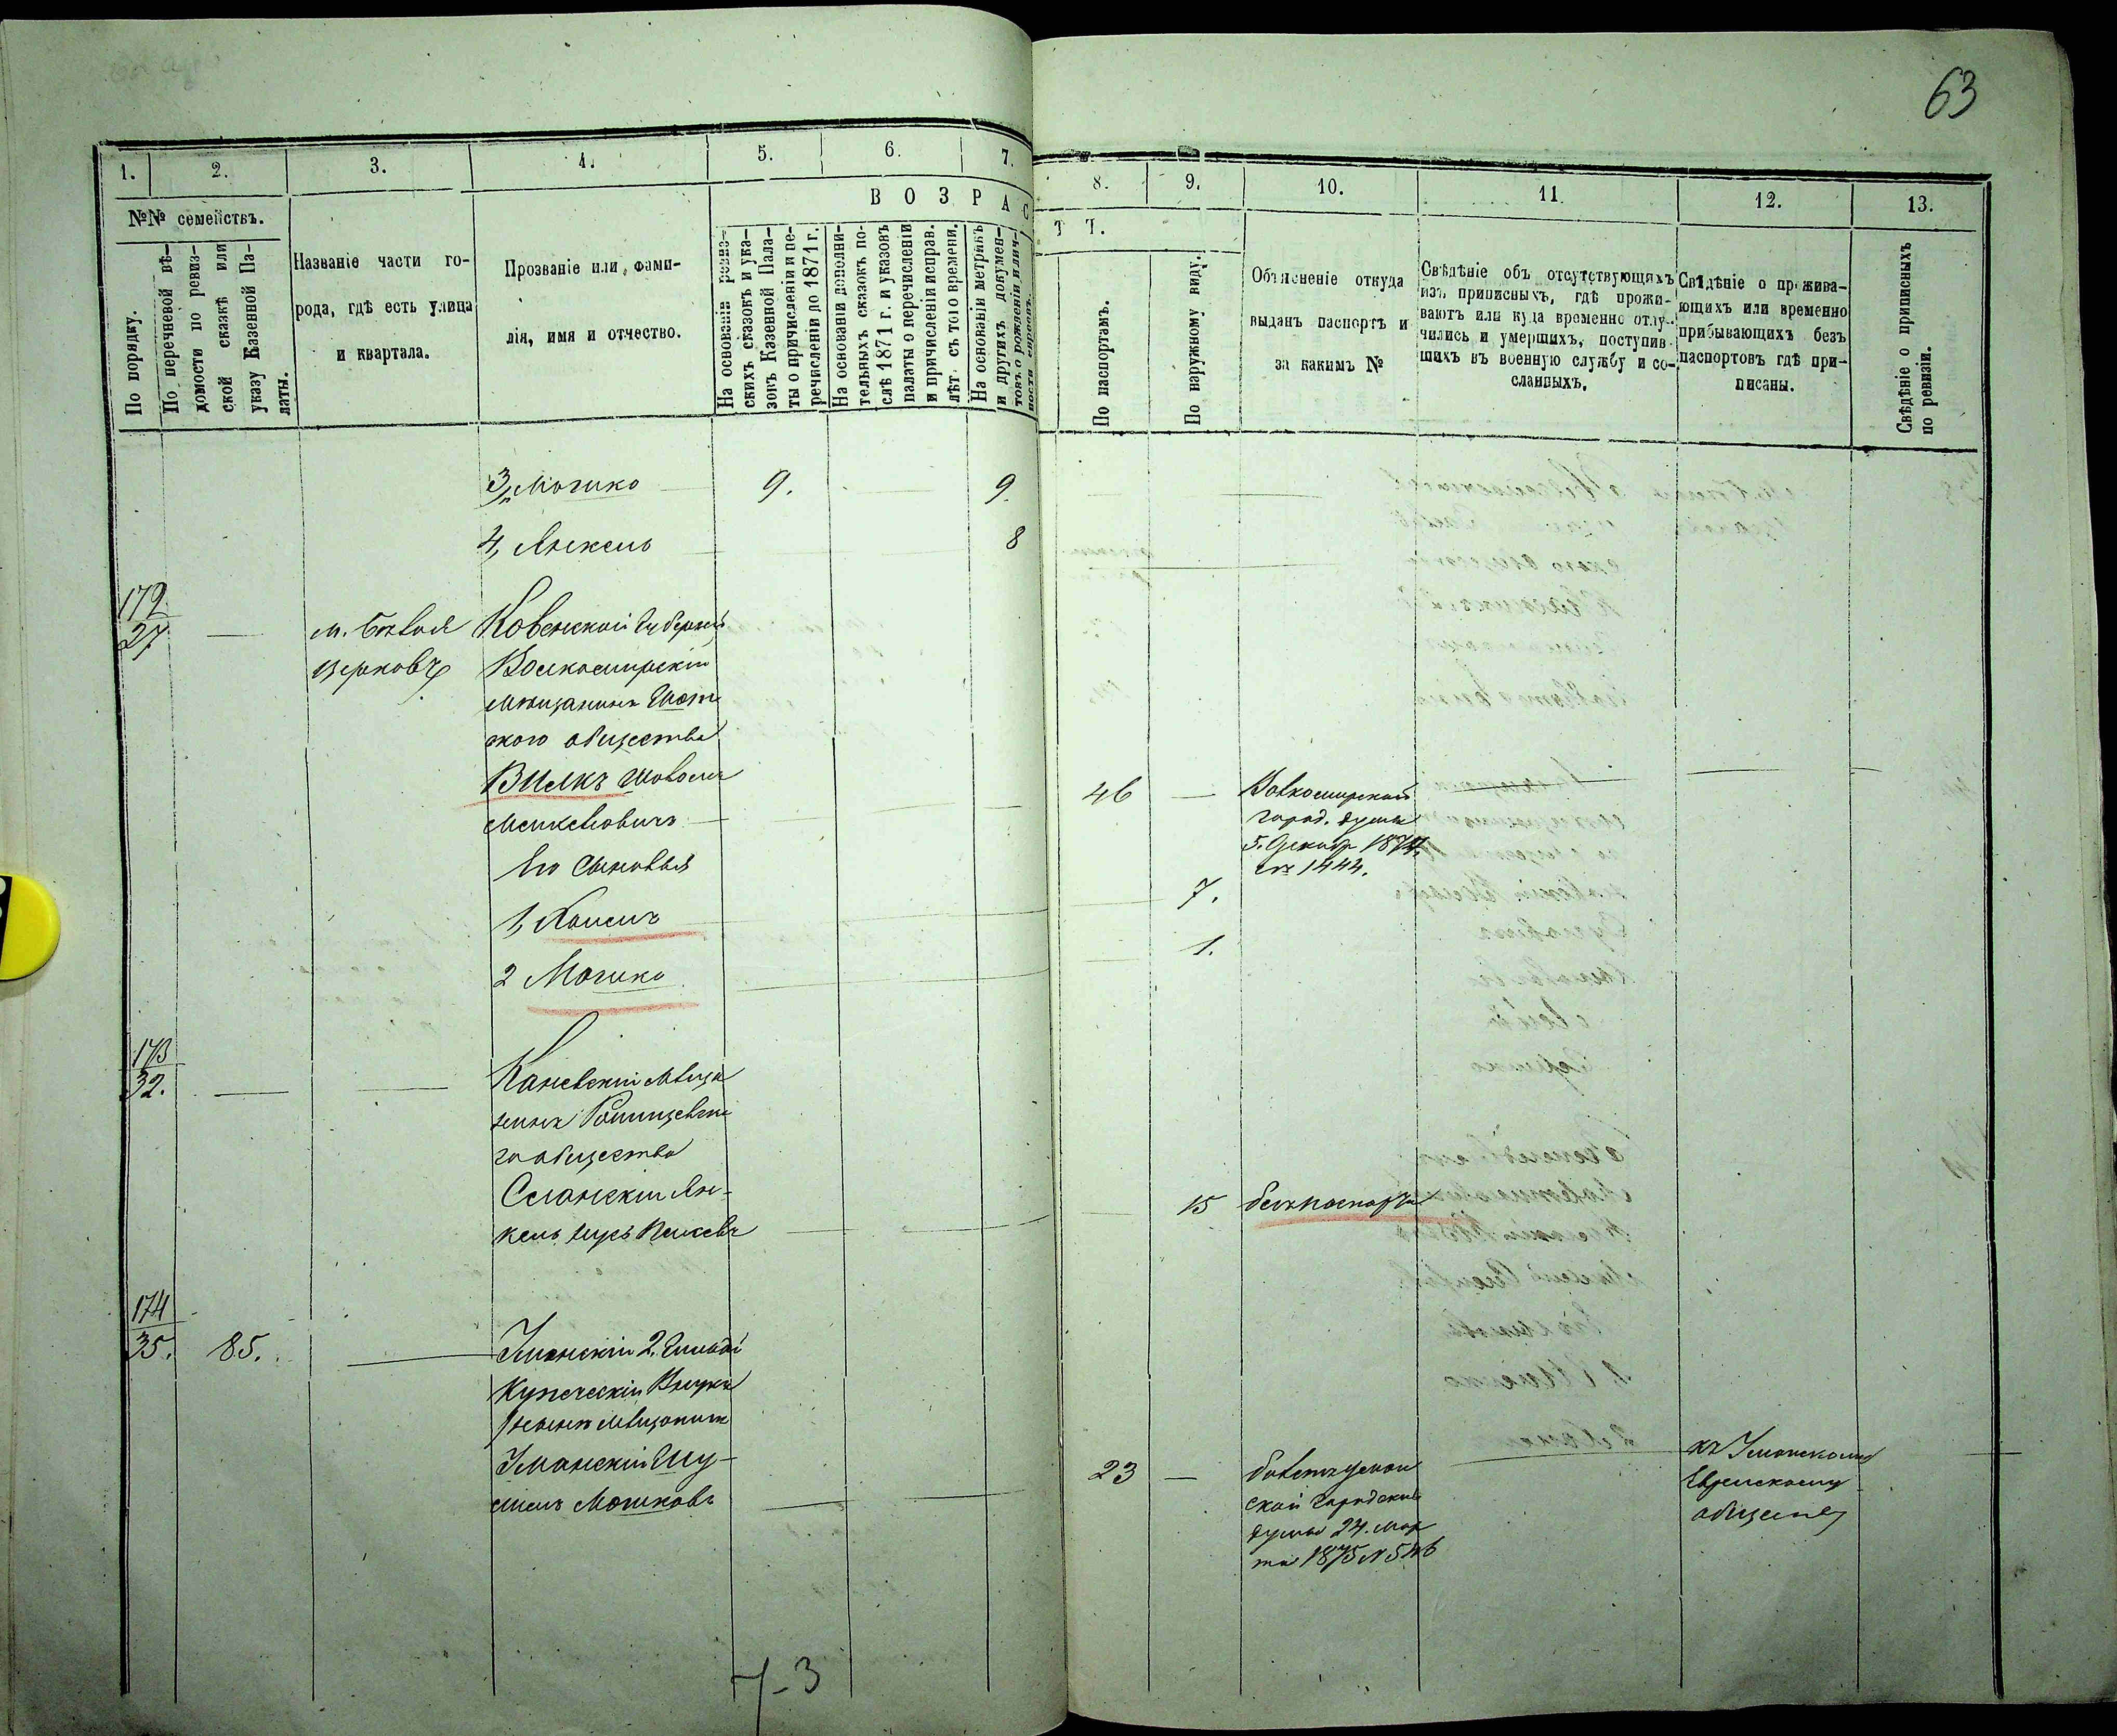 63
1.
2.
3.
4.
5.
6.
7.
8.
9.
10.
11.
12.
13.
№№ семействъ.
По порядку.
По перечневой вѣ-
домости по ревиз-
ской сказкѣ или
указу Казенной Па-
латы.
Названіе части го-
рода, гдѣ есть улица
и квартала.
Прозваніе или фами-
лія, имя и отчество.
ВОЗРАС
ТТ.
На основаніи ревиз-
скихъ сказокъ и ука-
зовъ Казенной Пала-
ты о причисленіи и пе-
речисленіи до 1871 г.
На основаніи дополни-
тельныхъ сказокъ по-
слѣ 1871 г. и указовъ
палаты о перечисленіи
и причисленіи исправ.
лѣт. съ того времени.
На основаніи метрикъ
и другихъ докумен-
товъ о рожденіи и лич-
ности евреевъ.
По паспортамъ.
По наружному виду.
Объясненіе откуда
выданъ паспортъ и
за какимъ №
Свѣдѣніе объ отсутствующихъ
изъ приписныхъ, гдѣ прожи-
ваютъ или куда временно отлу-
чились и умершихъ, поступив-
шихъ въ военную службу и со-
сланныхъ.
Свѣдѣніе о прожива-
ющихъ или временно
прибывающихъ безъ
паспортовъ гдѣ при-
писаны.
Свѣдѣніе о приписныхъ
по ревизіи.
3, Мошко 9. 9.
4, Янкель 8
172
27
м. Бѣлая
Церковь
Ковенской Губерніи
Волкомирскій
мѣщанинъ
ского общества
Вилкъ Шовель
46
Волкомирской
город. думы
5. Декабр 1874
за 1444.
Его сыновья
1, 7.
2 Мошко 1.
173
32.
Каневскій мѣща
нинъ
го общества
Селанскій Ян-
кель 15 безъ паспорта
174
35. 85.
Уманскій 2. Гильдіи
Купеческій Внукъ
нынѣ мѣщанинъ
Уманскій Шу-
лимъ Мошковъ
23
билетъ Уман
ской Городской
думы 24. мар
та 1875 N 546
къ Уманскому
Еврейскому
обществу
7-3